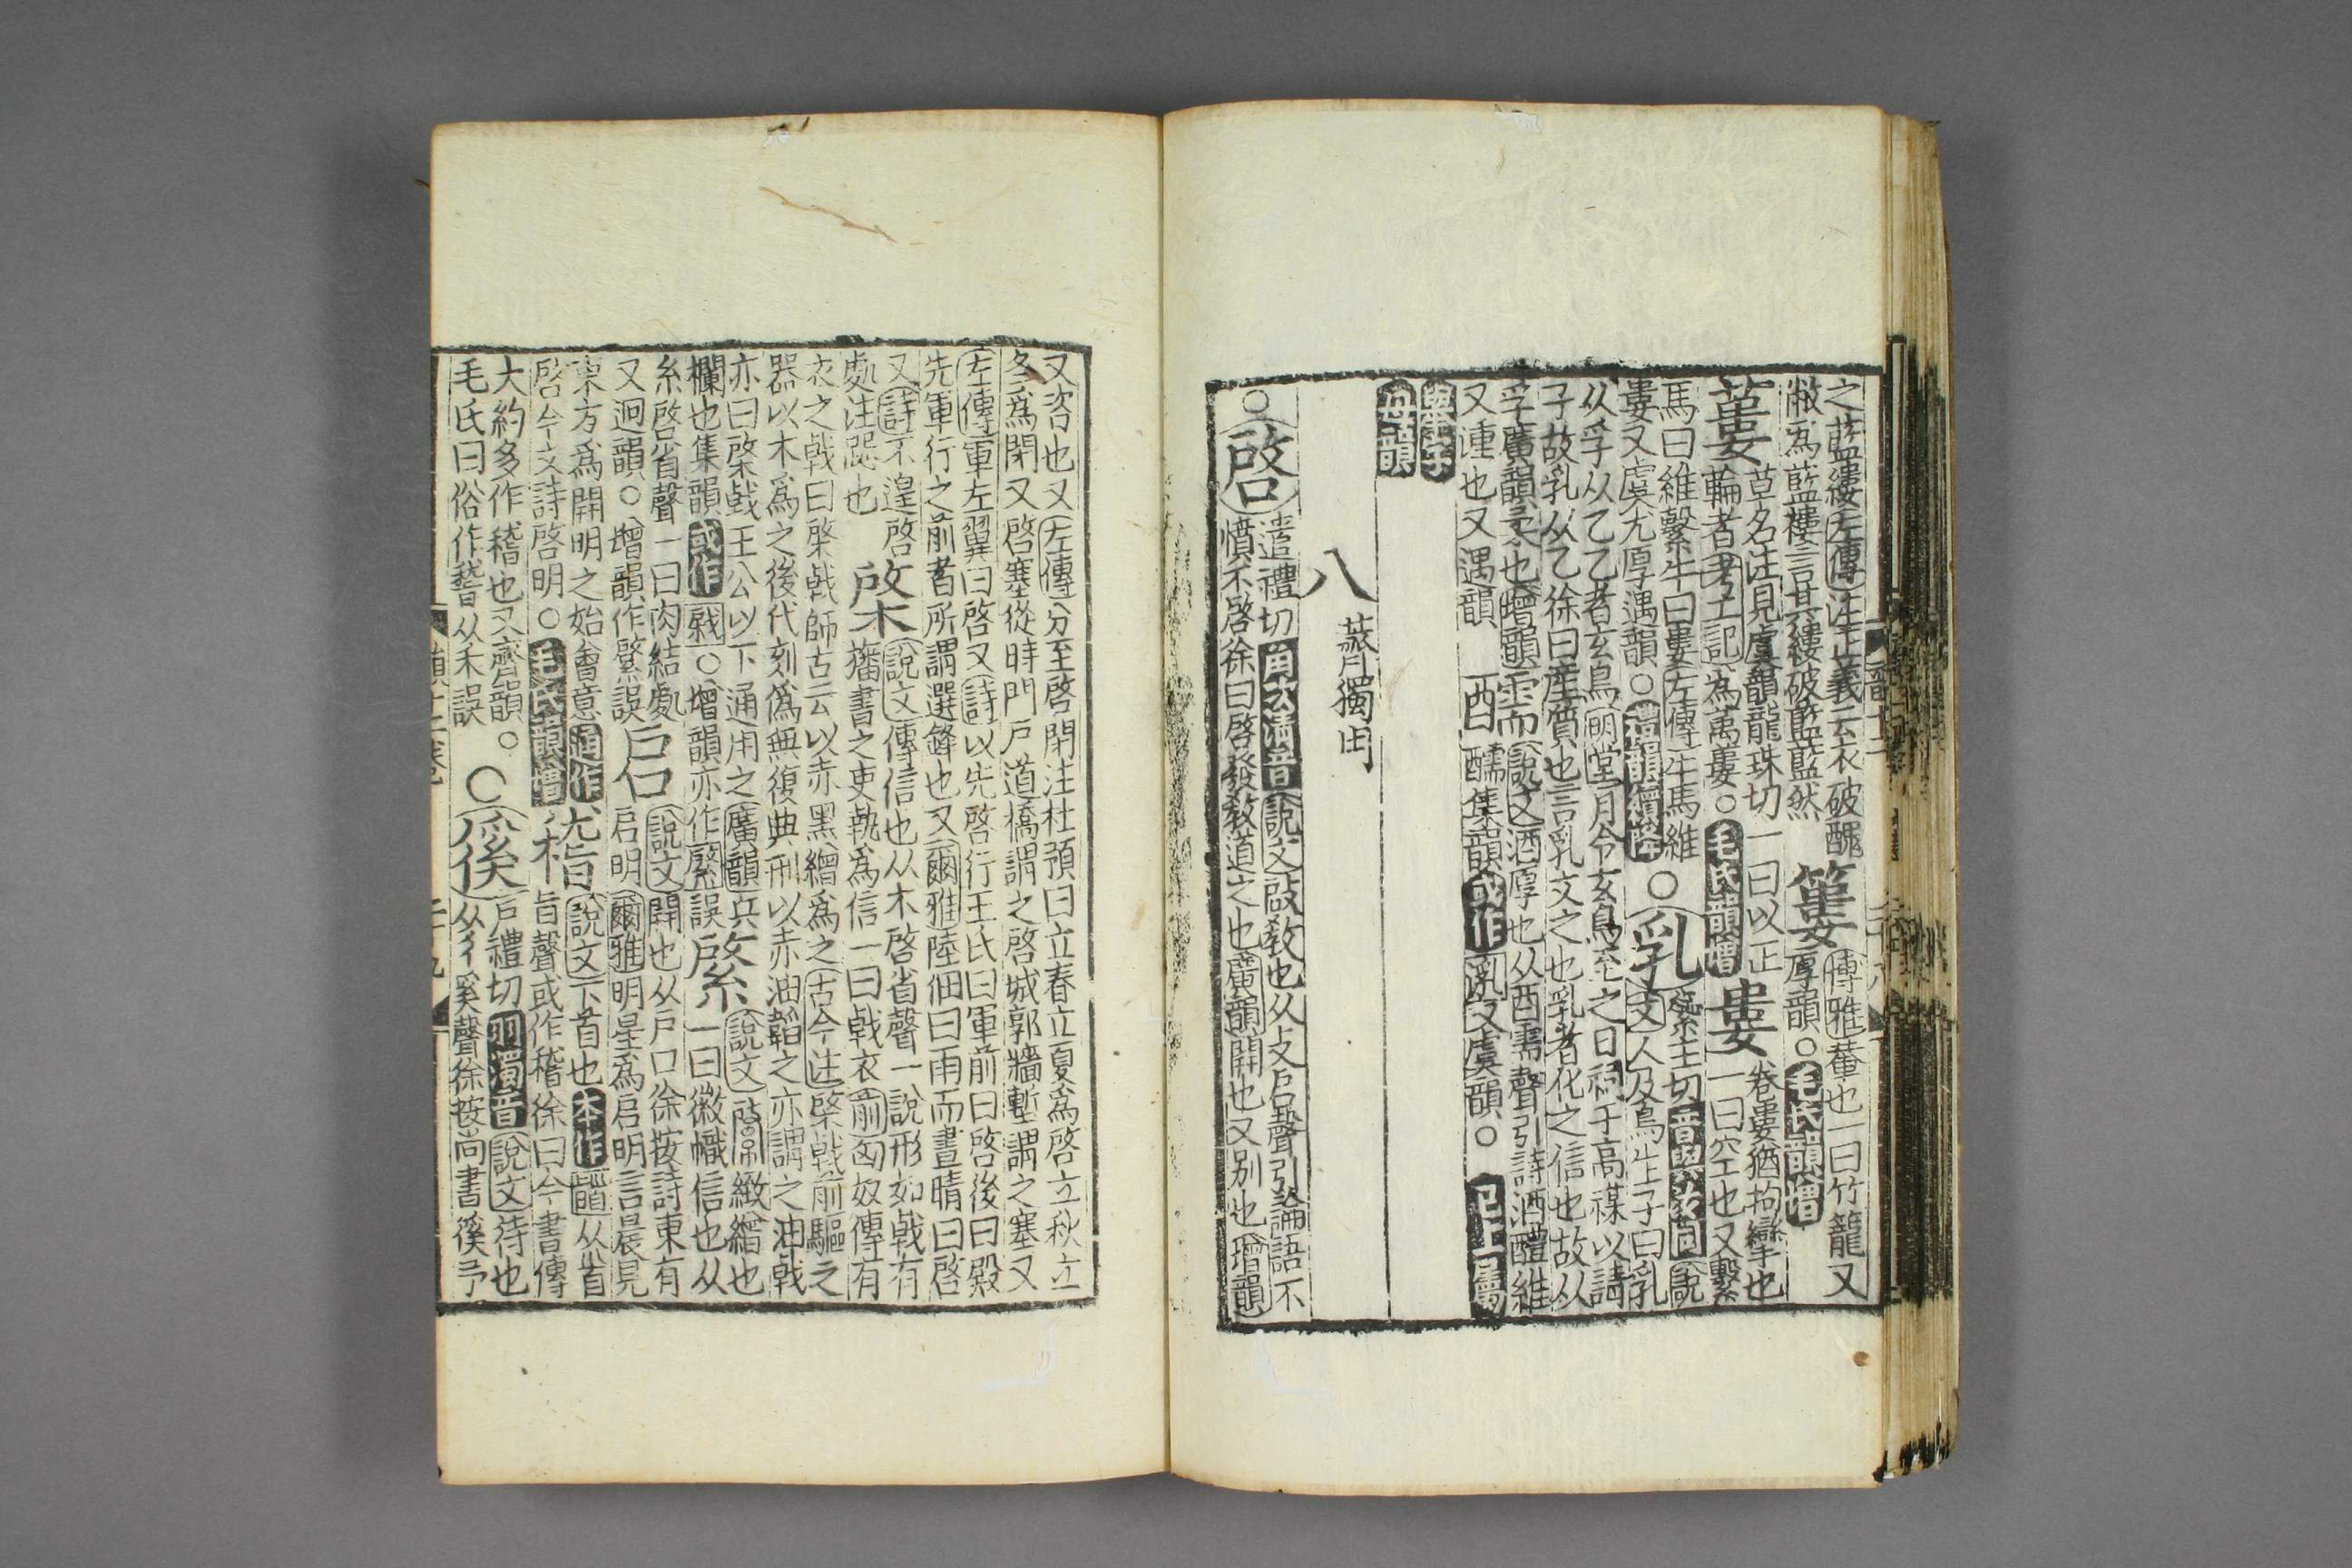 之藍縷左傳注正義云衣破醜
敝爲藍褸言其縷破藍藍然
簍
傳雅䔖也一曰竹籠又
厚韻○毛氏韻增
蔞
草名注見虞韻龍珠切一曰以正
輪者考工記爲萬蔞○毛氏韻增
婁
卷婁猶拘攣也
一曰空也又繫
馬曰維繫牛曰婁左傳牛馬維
婁又虞尤厚遇韻○禮韻續降
○乳
蘂主切音與汝同說
文人及鳥生子曰乳
从孚从乙乙者玄鳥明堂月令玄鳥至之日祠于高禖以請
子故乳从乙徐曰産質也言乳文之也乳者化之信也故从
孚廣韻柔也增韻湩而
又湩也又遇韻
醹
說文酒厚也从酉需聲引詩酒醴維
醹集韻或作又虞韻○已上屬
與
母韻
八 薺獨用
○啓
遣禮切角次清音說文啟教也从攴启聲引論語不
憤不啓徐曰啓發教道之也廣韻開也又别也增韻
又咨也又左傳分至啓閉注杜預曰立春立夏爲啓立秋立
冬爲閉又啓塞從時門戸道橋謂之啓城郭牆塹謂之塞又
左傳軍左翼曰啓又詩以先啓行王氏曰軍前曰啓後曰殿
先軍行之前者所謂選鋒也又爾雅陸佃曰雨而晝晴曰啓
又詩不遑啓
處注跽也
棨
說文傳信也从木啓省聲一說形如戟有
旛書之吏執爲信一曰戟衣前匈奴傳有
衣之戟曰棨戟師古云以赤黑繒爲之古今注棨戟前驅之
器以木爲之後代刻僞無復典刑以赤油韜之亦謂之油戟
亦曰棨戟王公以下通用之廣韻兵
欄也集韻或作○增韻亦作誤
綮
說文緻繒也
一曰徽幟信也从
糸啓省聲一曰肉結處
又迥韻○增韻作誤
启
說文開也从戸口徐按詩東有
启明爾雅明星爲启明言晨見
東方爲開明之始會意通作
啓今文詩啓明○毛氏韻增
䭫
說文下首也本作从𩠐
旨聲或作稽徐曰今書傳
大約多作稽也又齊韻○
毛氏曰俗作𥡴从禾誤
○徯
戸禮切羽濁音說文待也
从彳奚聲徐按尚書徯予